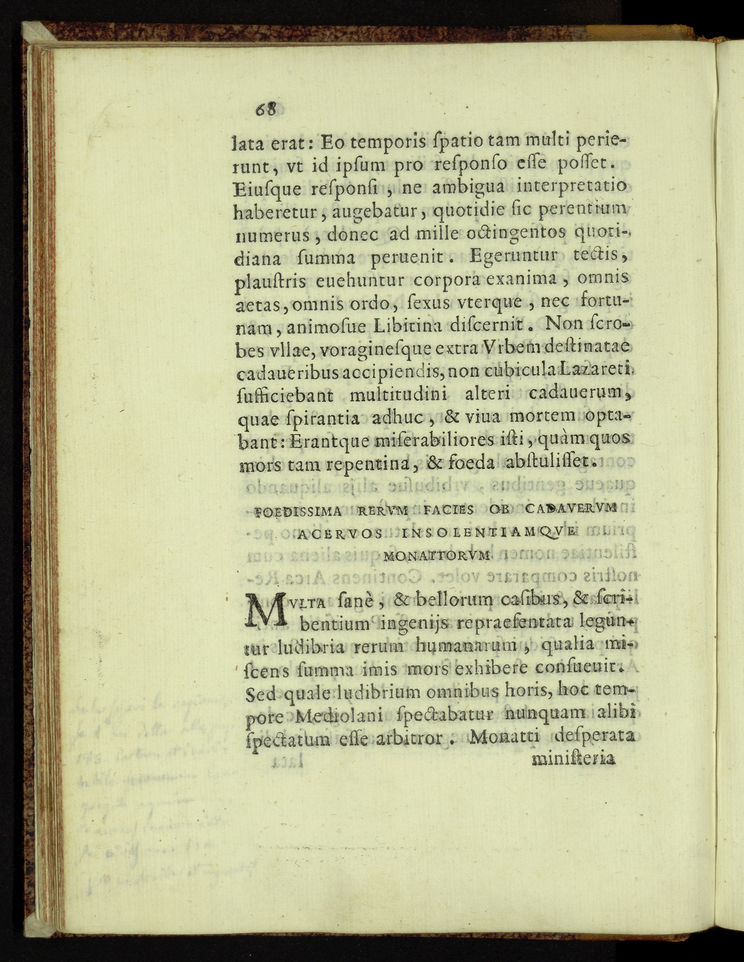 68
lata erat: Eo temporis ſpatio tam multi perie-
runt, vt id ipſum pro reſponſo eſſe poſſet.
Eiuſque reſponſi, ne ambigua interpretatio
haberetur, augebatur, quotidie ſic perentium
numerus, donec ad mille octingentos quoti-
diana ſumma peruenit. Egeruntur tectis,
plauſtris euehuntur corpora exanima, omnis
aetas, omnis ordo, ſexus vterque, nec fortu-
nam, animoſue Libitina diſcernit. Non ſcro-
bes vllae, voragineſque extra Vrbem deſtinatae
cadaueribus accipiendis, non cubicula Lazareti
ſufficiebant multitudini alteri cadauerum,
quae ſpirantia adhuc, & viua mortem opta-
bant: Erantque miſerabiliores iſti, quàm quos
mors tam repentina, & foeda abſtuliſſet.
FOEDISSIMA RERVM FACIES OB CADAVERVM
ACERVOS INSOLENTIAMQVE
MONATTORVM
MVLTA ſanè, & bellorum caſibus, & ſcri-
bentium ingenijs repraeſentata legun-
tur ludibria rerum humanarum, qualia mi-
ſcens ſumma imis mors exhibere conſueuit.
Sed quale ludibrium omnibus horis, hoc tem-
pore Mediolani ſpectabatur nunquam alibi
ſpectatum eſſe arbitror. Monatti deſperata
miniſteria